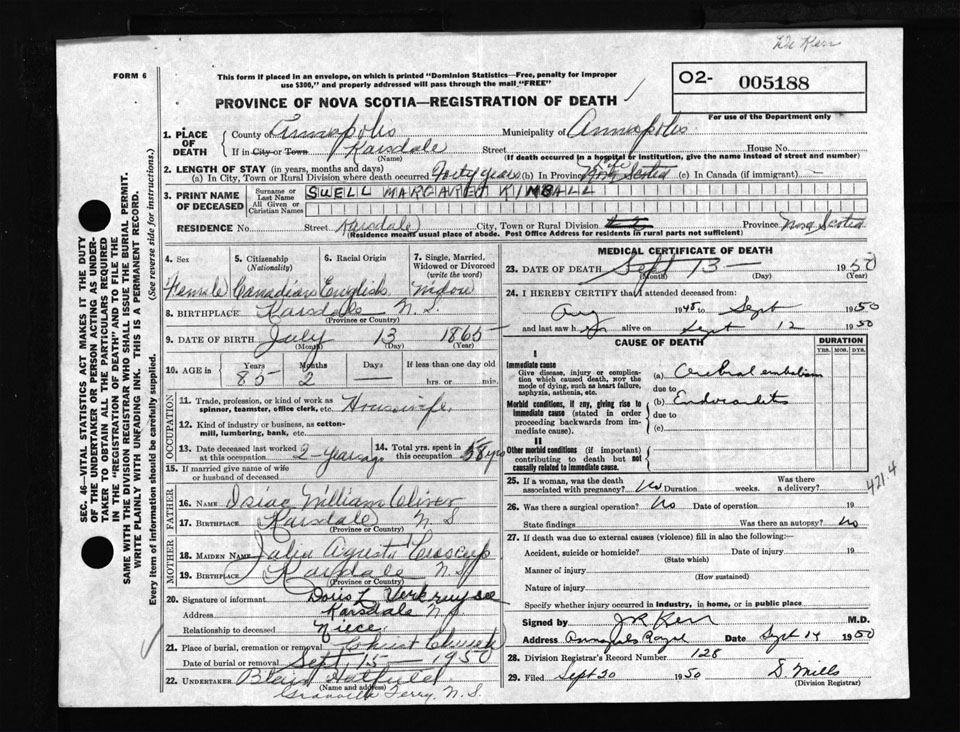 De Kerr
FORM 6
This form if placed in an envelope, on which is printed "Dominion Statistics—Free, penalty for improper
use $300," and properly addressed will pass through the mail "FREE"
PROVINCE OF NOVA SCOTIA—REGISTRATION OF DEATH
O2- 005188
For use of the Department only
1. PLACE OF DEATH
County of Annapolis Municipality of Annapolis
If in City or Town Karsdale Street House No.
(Name) (If death occurred in a hospital or institution, give the name instead of street and number)
2. LENGTH OF STAY (in years, months and days)
(a) In City, Town or Rural Division where death occurred forty years (b) In Province Life Nova Scotia (c) In Canada (if immigrant)
3. PRINT NAME OF DECEASED
Surname or Last Name SWELL MARGARET KIMBALL
All Given or Christian Names
RESIDENCE No. Street Karsdale City, Town or Rural Division Province Nova Scotia
(Residence means usual place of abode. Post Office Address for residents in rural parts not sufficient)
4. Sex 5. Citizenship (Nationality) 6. Racial Origin 7. Single, Married, Widowed or Divorced (write the word)
Female Canadian English Widow
8. BIRTHPLACE Karsdale N.S.
(Province or Country)
9. DATE OF BIRTH July 13 1865
(Month) (Day) (Year)
10. AGE in Years Months Days If less than one day old
85 2 — hrs. or min.
OCCUPATION
11. Trade, profession or kind of work as spinner, teamster, office clerk, etc. Housewife
12. Kind of industry or business, as cotton-mill, lumbering, bank, etc.
13. Date deceased last worked at this occupation 2-years ago 14. Total yrs. spent in this occupation 58 yrs
15. If married give name of wife or husband of deceased
FATHER
16. NAME Isiac William Oliver
17. BIRTHPLACE Karsdale N S
(Province or Country)
MOTHER
18. MAIDEN NAME Julia Agusta Croscup
19. BIRTHPLACE Karsdale N.S
(Province or Country)
20. Signature of informant Doris L Verkruysse
Address Karsdale N.S.
Relationship to deceased Niece
21. Place of burial, cremation or removal Christ Church
Date of burial or removal Sept, 15— 1950
22. UNDERTAKER Blair Hatfield
(Name and address)
Granville Ferry, N.S.
MEDICAL CERTIFICATE OF DEATH
23. DATE OF DEATH Sept 13 — 1950
(Month) (Day)
24. I HEREBY CERTIFY that I attended deceased from:
Aug 1948 to Sept 1950
and last saw her alive on Sept 12 1950
CAUSE OF DEATH DURATION
YRS. MOS. DYS.
I
Immediate cause
Give disease, injury or complication which caused death, NOT the mode of dying, such as heart failure, asphyxia, asthenia, etc.
(a) Cerebral embolism
due to
Morbid conditions, if any, giving rise to immediate cause (stated in order proceeding backwards from immediate cause).
(b) Endocarditis
due to
(c)
II
Other morbid conditions (if important) contributing to death but not causally related to immediate cause.
25. If a woman, was the death associated with pregnancy? No Duration weeks. Was there a delivery?
421.4
26. Was there a surgical operation? No Date of operation 19
State findings Was there an autopsy? No
27. If death was due to external causes (violence) fill in also the following:
Accident, suicide or homicide? Date of injury 19
(State which)
Manner of injury
(How sustained)
Nature of injury
Specify whether injury occurred in industry, in home, or in public place
Signed by J R Kerr M.D.
Address Annapolis Royal Date Sept 14 1950
28. Division Registrar's Record Number 128
29. Filed Sept 20 1950 D. Mills
(Division Registrar)
SEC. 46—VITAL STATISTICS ACT MAKES IT THE DUTY
OF THE UNDERTAKER OR PERSON ACTING AS UNDER-
TAKER TO OBTAIN ALL THE PARTICULARS REQUIRED
IN THE "REGISTRATION OF DEATH" AND TO FILE THE
SAME WITH THE DIVISION REGISTRAR WHO SHALL ISSUE THE BURIAL PERMIT.
WRITE PLAINLY WITH UNFADING INK. THIS IS A PERMANENT RECORD.
Every item of Information should be carefully supplied. (See reverse side for instructions.)